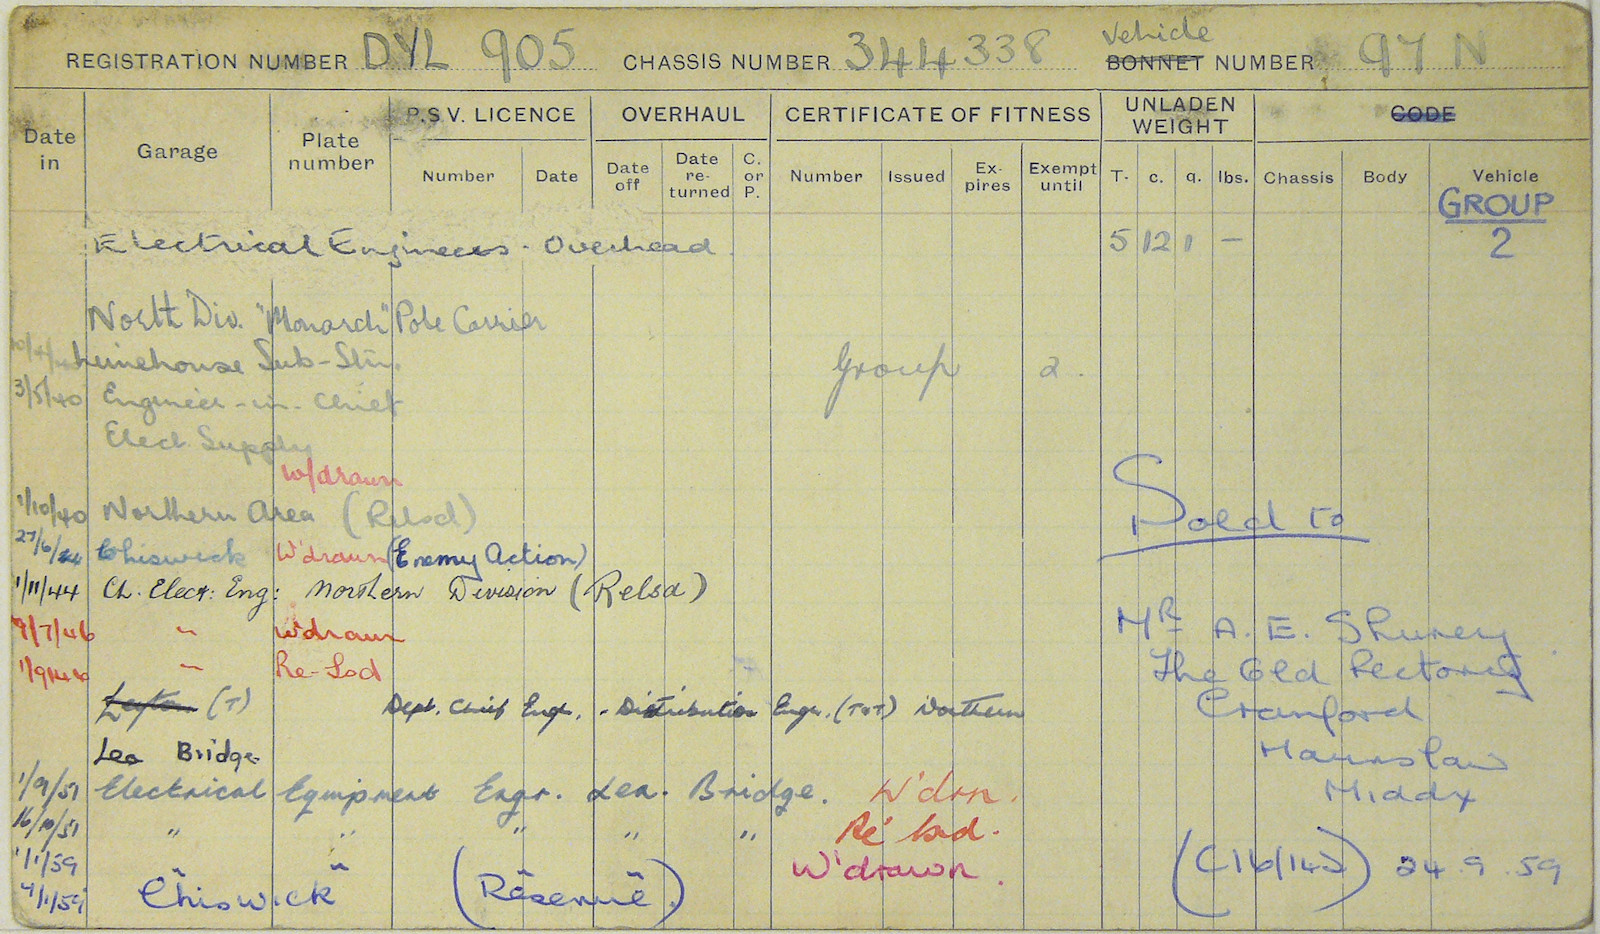 REGISTRATION NUMBER DYL 905 CHASSIS NUMBER 344338 Vehicle BONNET NUMBER 97 N
Date in Garage Plate number P.S.V. LICENCE OVERHAUL CERTIFICATE OF FITNESS UNLADEN WEIGHT CODE
Number Date Date off Date re-turned C. or P. Number Issued Ex-pires Exempt until T. c. q. lbs. Chassis Body Vehicle
GROUP
Electrical Engineers - Overhead 5 12 1 — 2
North Div. "Monarch" Pole Carrier
Limehouse Sub-Stn. Group 2.
3/5/40 Engineer-in-Chief
Elect. Supply
W/drawn
1/10/40 Northern Area (Relsd) Sold to
27/6/44 Chiswick W'drawn (Enemy Action)
1/11/44 Ch. Elect: Eng: Northern Division (Relsd)
9/7/46 " W'drawn Mr A. E. Shurey
1/9/46 " Re-Lsd The Old Rectory
(T) Dept. Chief Engr. - Distribution Engr. (T&T) Northern Cranford
Lea Bridge Hounslow
1/9/51 Electrical Equipment Engr. Lea Bridge. W'drn. Middx
16/10/51 " " " " " Re' lsd.
1/1/59 " W'drawn. (C16/142) 24.9.59
4/1/59 Chiswick (Reserve)